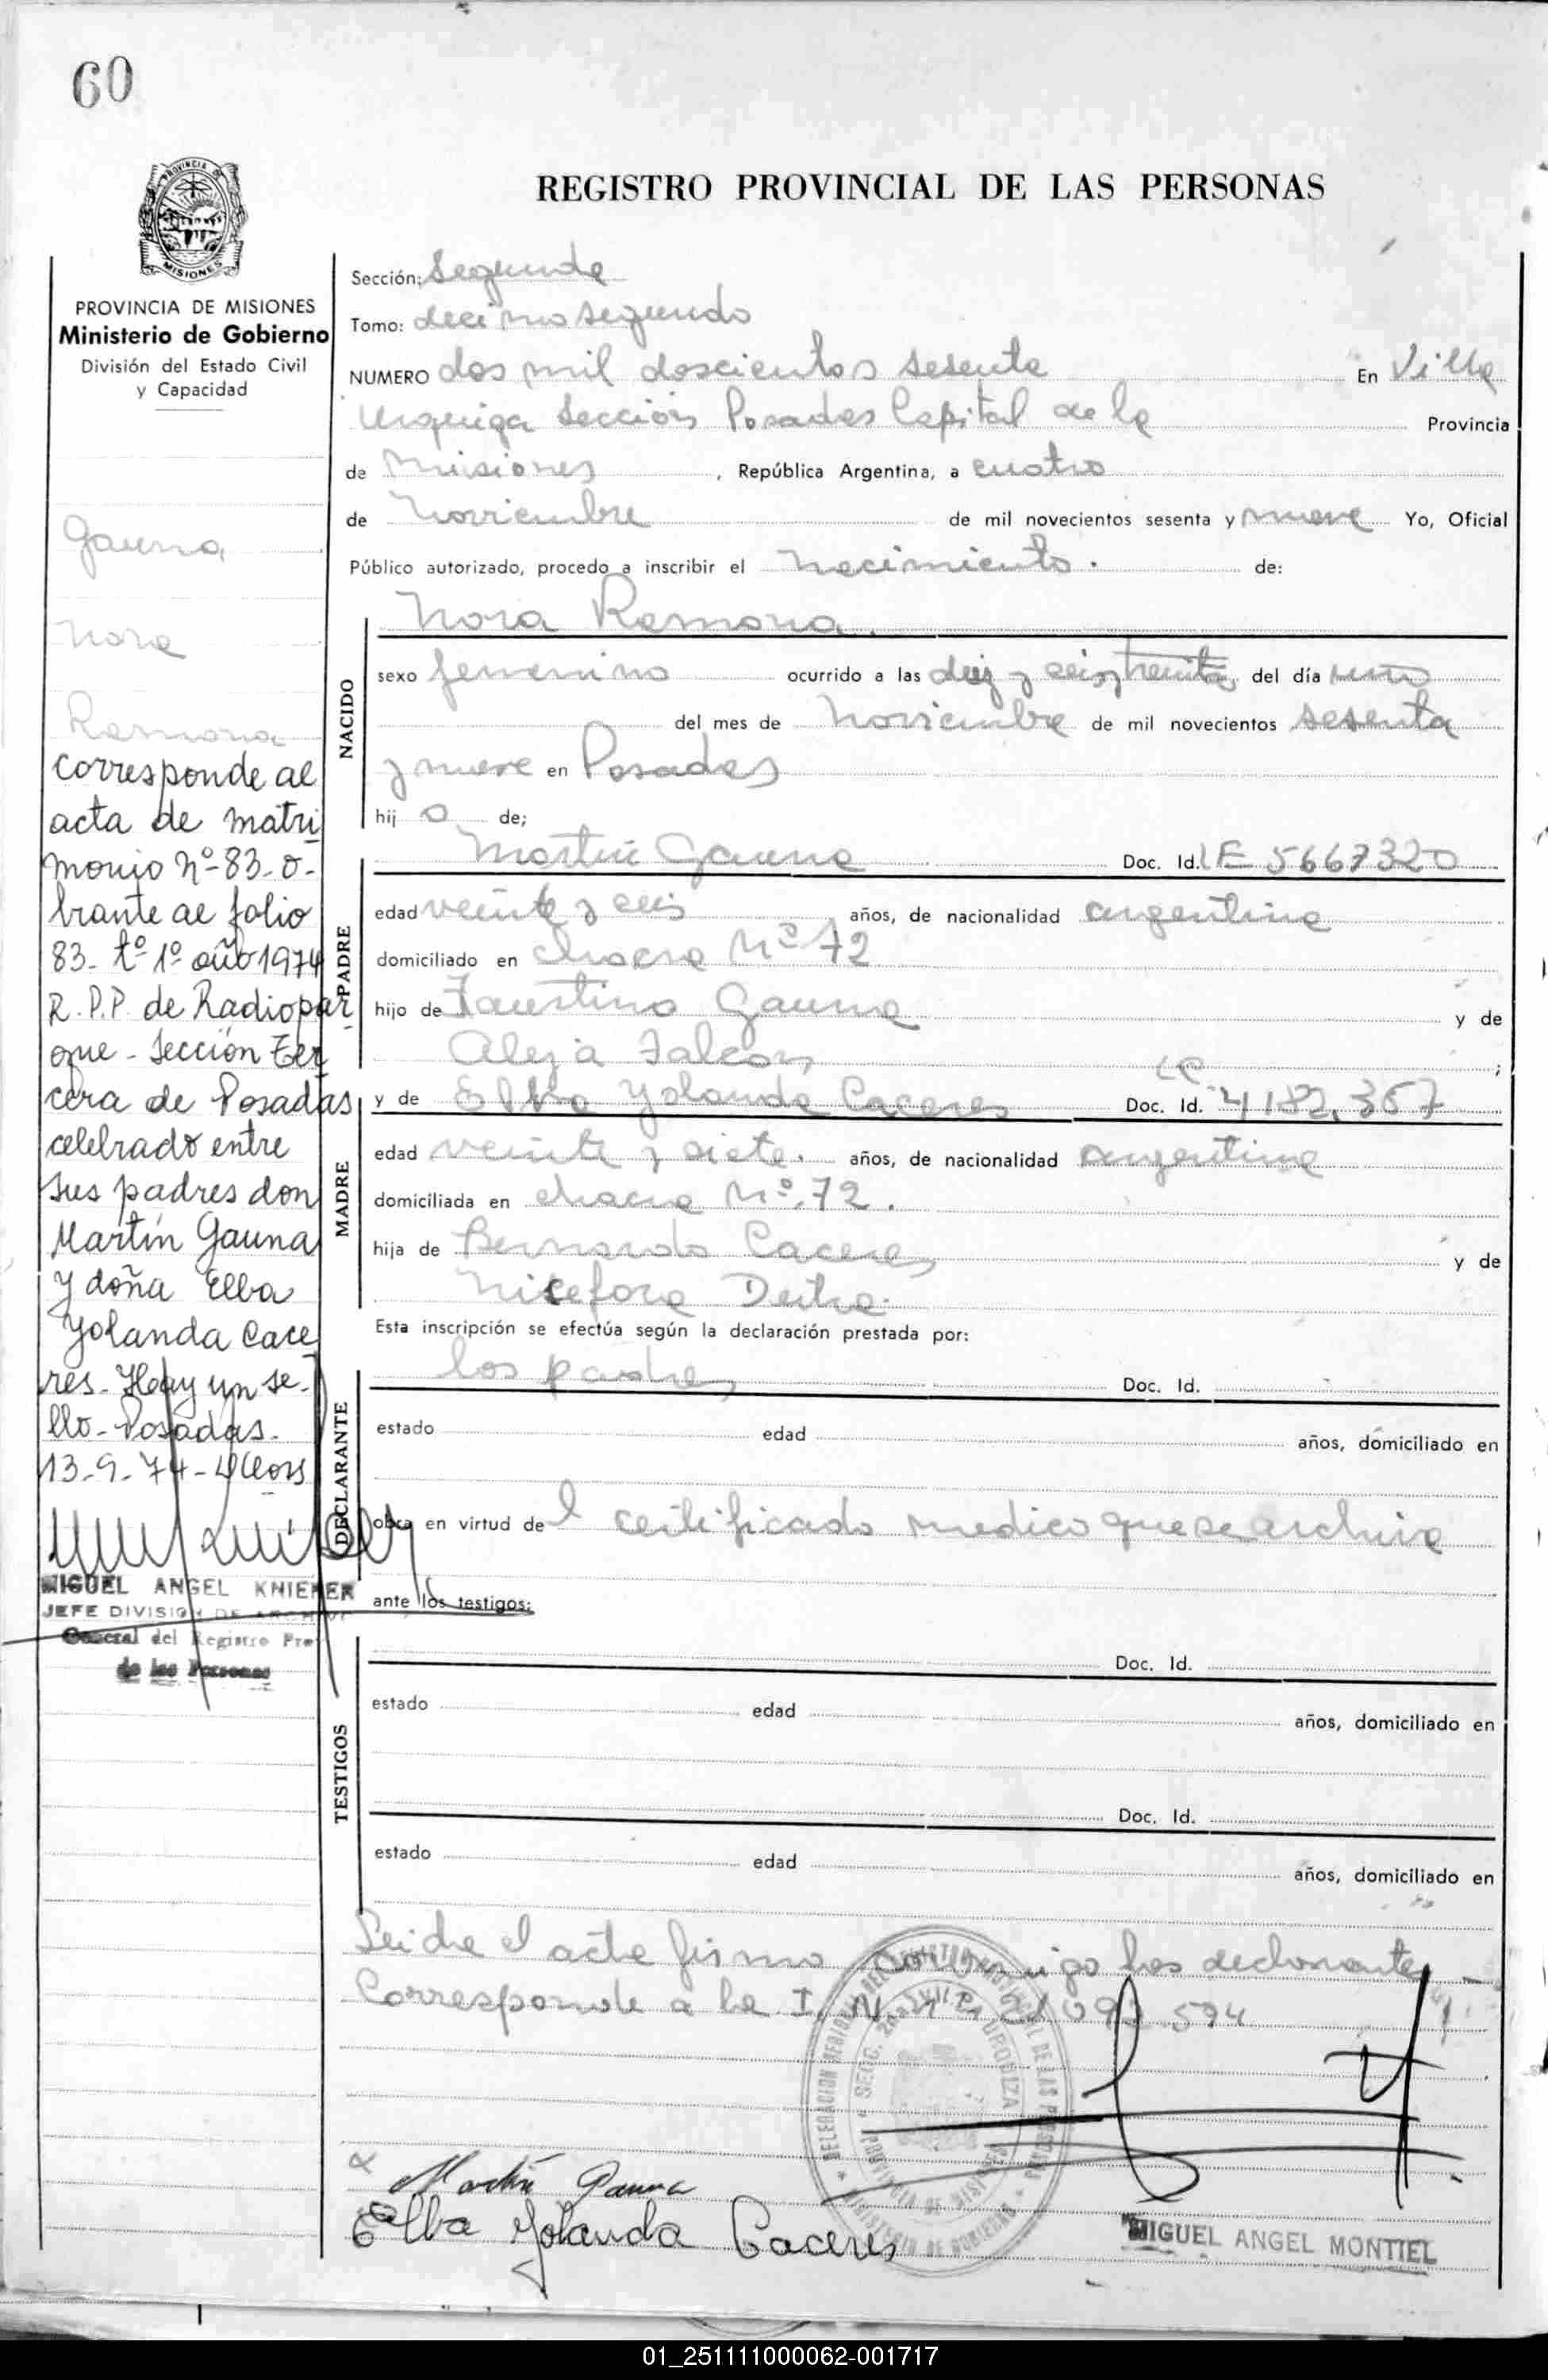 60
PROVINCIA DE
MISIONES
REGISTRO PROVINCIAL DE LAS PERSONAS
PROVINCIA DE MISIONES
Ministerio de Gobierno
División del Estado Civil
y Capacidad
Gauna
Nora
Ramona
corresponde al
acta de matri
monio Nº-83-o-
brante al folio
83- tº-1º año 1974
R.P.P. de Radiopar
que - Sección Ter
cera de Posadas
celebrado entre
sus padres don
Martín Gauna
y doña Elba
Yolanda Cace
res- Hay un se-
llo- Posadas-
13-9-74-
MIGUEL ANGEL KNIEFER
JEFE DIVISION DE
General del Registro Pro
de las Personas
Sección: Segunda
Tomo: decimo segundo
NUMERO dos mil doscientos sesenta En Villa
Urquiza Sección Posadas Capital de la Provincia
de Misiones, República Argentina, a cuatro
de Noviembre de mil novecientos sesenta y nueve Yo, Oficial
Público autorizado, procedo a inscribir el nacimiento. de:
NACIDO
Nora Ramona
sexo femenino ocurrido a las diez y seis, treinta del día uno
del mes de Noviembre de mil novecientos sesenta
y nueve en Posadas
hij a de;
PADRE
Martin Gauna Doc. Id. LE 5667320
edad veinte y seis años, de nacionalidad argentina
domiciliado en chacra Nº 72
hijo de Faustino Gauna y de
Aleja Falcon ;
LC
MADRE
y de Elba Yolanda Caceres Doc. Id. 4182.367
edad veinte y siete. años, de nacionalidad argentina
domiciliada en chacra Nº 72.
hija de Bernardo Caceres y de
Nicefora
Esta inscripción se efectúa según la declaración prestada por:
DECLARANTE
los padres Doc. Id.
estado edad años, domiciliado en
obra en virtud del certificado medico que se archiva
ante los testigos:
TESTIGOS
Doc. Id.
estado edad años, domiciliado en
Doc. Id.
estado edad años, domiciliado en
Leida el acta firma conmigo los declarantes
Corresponde a la I. N. 594
DELEGACION DEL REGISTRO PROVINCIAL DE LAS PERSONAS
SECC. 2da. VILLA URQUIZA
PROVINCIA DE MISIONES
MINISTERIO DE GOBIERNO
Martin Gauna
Elba Yolanda Caceres
MIGUEL ANGEL MONTIEL
01_251111000062-001717